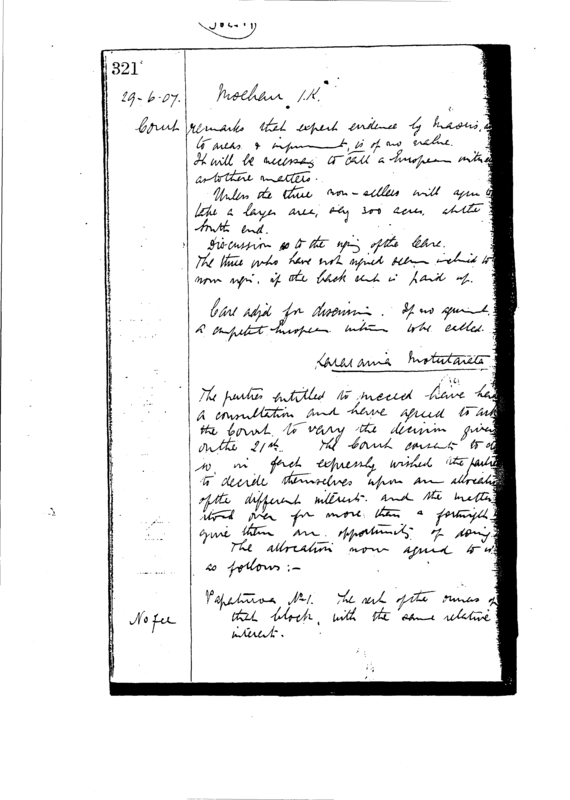 321
29-6-07. Moehau 1.K.
Court remarks that expert evidence by Maoris, as
to areas & improvement, is of no value.
It will be necessary to call a European witness
as to these matters.
Unless the three non-sellers will agree to
take a larger area, say 300 acres, at the
South end.
Discussion as to the signing of the lease.
The three who have not signed seem inclined to
now sign, if the back rent is paid up.
Case adjd for discussion. If no agreement
a competent European witness to be called.
The parties entitled to succeed have had
a consultation and have agreed to ask
the Court to vary the decision given
on the 21st. The Court consents to do
so, in fact expressly wished the parties
to decide themselves upon an allocation
of the different interests and the matter
stood over for more than a fortnight
give them an opportunity of doing
The allocation now agreed to is
as follows:-
No 1. The rest of the owners of
No fee that block, with the same relative
interest.